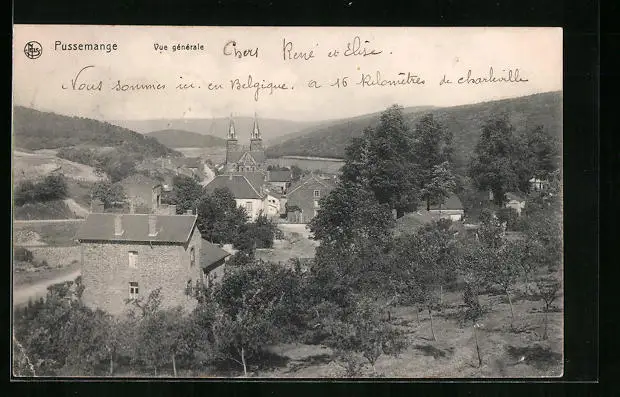 Pussemange Vue générale Chers René et Elise.
Vous sommes ici. en Belgique. a 16 Kilomètres de charleville